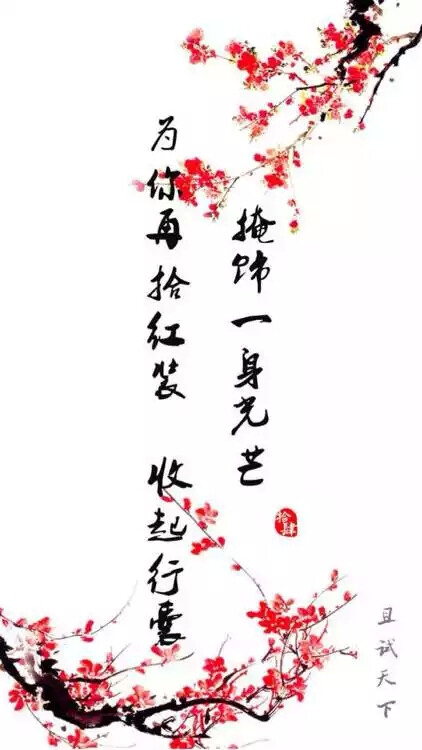 为你再拾红装 收起行囊
掩饰一身光芒
拾肆
且试天下